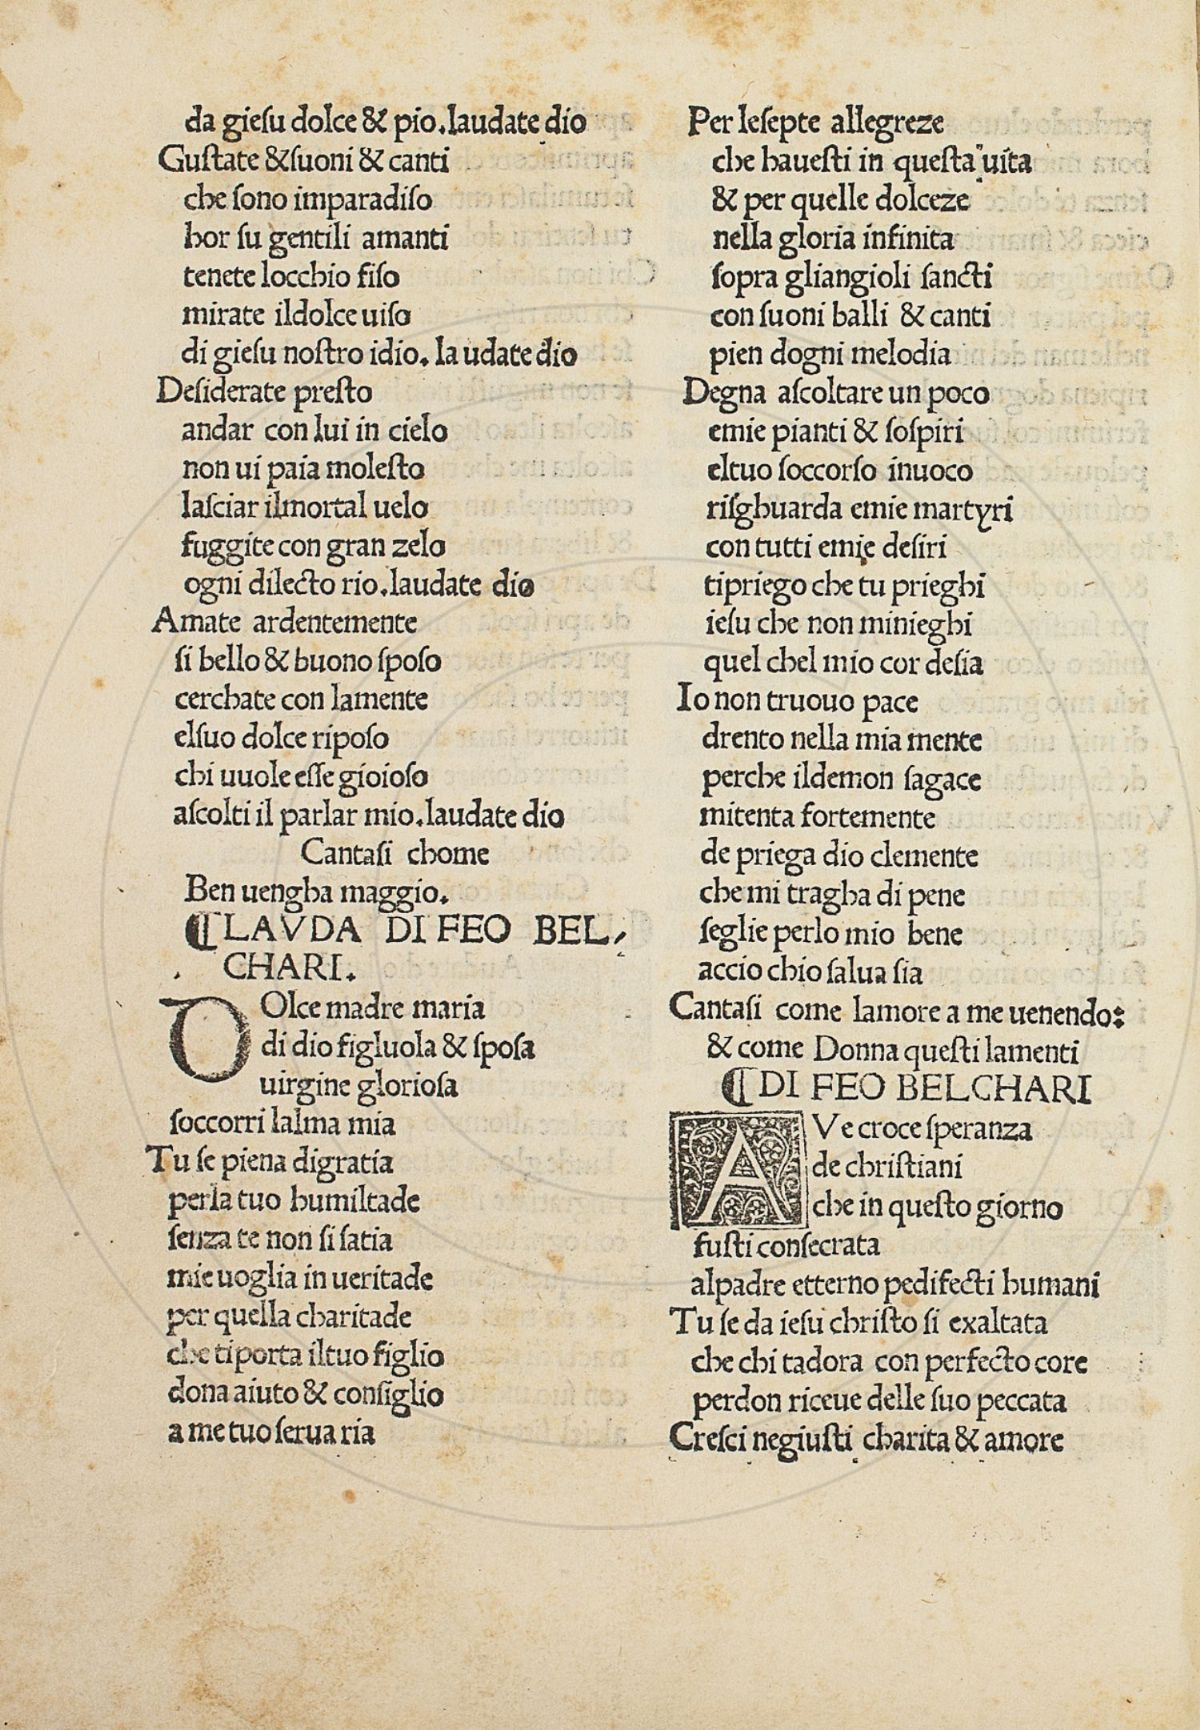 da gieſu dolce & pio.laudate dio
Guſtate &ſuoni & canti
che ſono imparadiſo
hor ſu gentili amanti
tenete locchio fiſo
mirate ildolce uiſo
di gieſu noſtro idio. la udate dio
Deſiderate preſto
andar con lui in cielo
non ui paia moleſto
laſciar ilmortal uelo
fuggite con gran zelo
ogni dilecto rio.laudate dio
Amate ardentemente
ſi bello & buono ſpoſo
cerchate con lamente
elſuo dolce ripoſo
chi uuole eſſe gioioſo
aſcolti il parlar mio.laudate dio
Cantaſi chome
Ben uengha maggio.
¶LAVDA DI FEO BEL,
CHARI.
DOlce madre maria
di dio figluola & ſpoſa
uirgine glorioſa
ſoccorri lalma mia
Tu ſe piena digratia
perla tuo humiltade
ſenza te non ſi ſatia
mie uoglia in ueritade
per quella charitade
che tiporta iltuo figlio
dona aiuto & conſiglio
a me tuo ſerua ria
Per leſepte allegreze
che haueſti in queſta uita
& per quelle dolceze
nella gloria infinita
ſopra gliangioli ſancti
con ſuoni balli & canti
pien dogni melodia
Degna aſcoltare un poco
emie pianti & ſoſpiri
eltuo ſoccorſo inuoco
riſghuarda emie martyri
con tutti emie deſiri
tipriego che tu prieghi
ieſu che non minieghi
quel chel mio cor deſia
Io non truouo pace
drento nella mia mente
perche ildemon ſagace
mitenta fortemente
de priega dio clemente
che mi tragha di pene
ſeglie perlo mio bene
accio chio ſalua ſia
Cantaſi come lamore a me uenendo:
& come Donna queſti lamenti
¶DI FEO BELCHARI
AVe croce ſperanza
de chriſtiani
che in queſto giorno
fuſti conſecrata
alpadre etterno pedifecti humani
Tu ſe da ieſu chriſto ſi exaltata
che chi tadora con perfecto core
perdon riceue delle ſuo peccata
Creſci negiuſti charita & amore